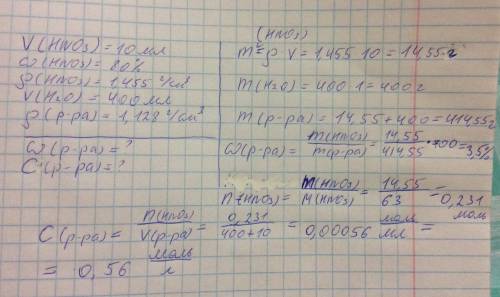 V(HNO₃)=10 мл
ω(HNO₃)=80%
ρ(HNO₃)=1,455 г/см³
V(H₂O)=400 мл
ρ(р-ра)=1,128 г/см³
ω(р-ра)=?
C(р-ра)=?
(HNO₃)
m=ρ·V=1,455·10=14,55 г
m(H₂O)=400·1=400 г
m(р-ра)=14,55+400=414,55 г
ω(р-ра)=m(HNO₃)/m(р-ра)=14,55/414,55·100=3,5%
n(HNO₃)=m(HNO₃)/M(HNO₃)=14,55/63=0,231 моль
C(р-ра)=n(HNO₃)/V(р-ра)=0,231/400+10=0,00056 моль/мл=
=0,56 моль/л